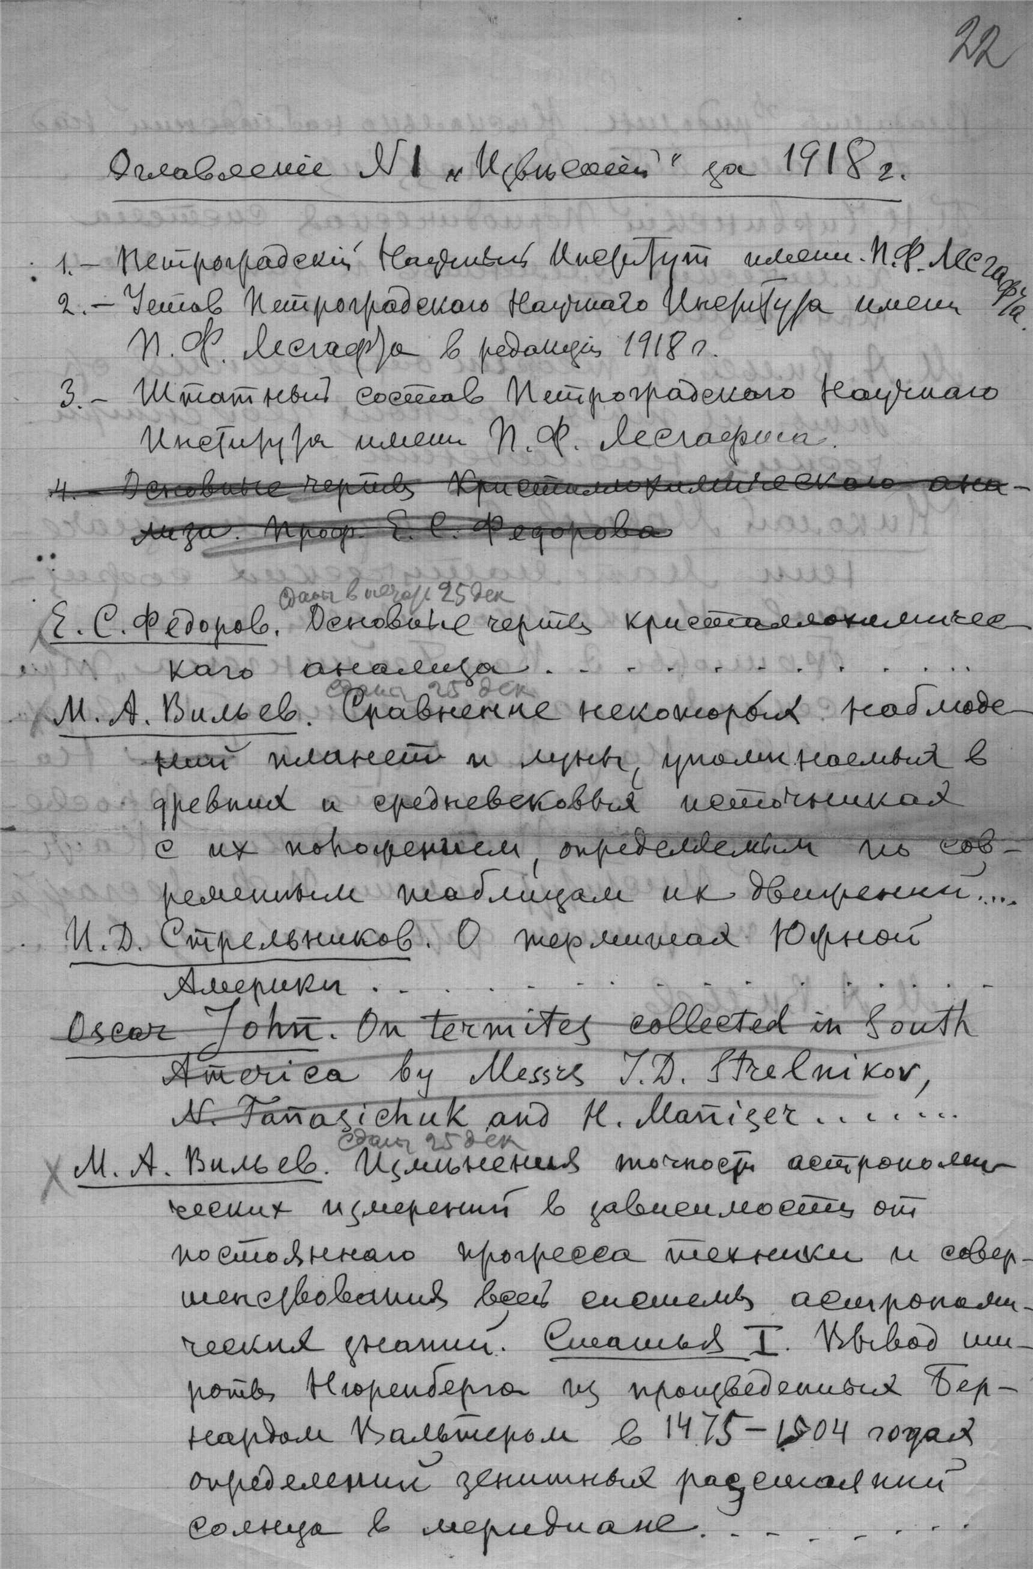 22
Оглавленіе N1 „Извѣстій" за 1918 г.
1.– Петроградскій Научный Институт имени П.Ф. Лесгафта.
2.– Устав Петроградскаго Научнаго Института имени
П. Ф. Лесгафта в редакціи 1918 г.
3.– Штатный состав Петроградскаго Научнаго
Института имени П. Ф. Лесгафта.
4.– Основные черты Кристаллохимическаго ана-
лиза. Проф. Е. С. Федорова
Сдана в печать 25 дек
Е. С. Федоров. Основные черты кристаллохимичес
каго анализа . . . . . . . . . . . .
сдана 25 дек
М. А. Вильев. Сравнение некоторых наблюде
ний планет и луны, упоминаемых в
древних и средневековых источниках
с их положением, определяемым по сов-
ременным таблицам их движений....
И. Д. Стрельников. О термитах Южной
Америки . . . . . . . . . . . . . .
Oscar John. On termites collected in South
America by Messrs I.D. Strelnikov,
N. Tanasichuk and H. Maniser . . . . . . .
сдана 25 дек
М. А. Вильев. Изменения точности астрономи
ческих измерений в зависимости от
постояннаго прогресса техники и совер-
шенствования всей системы астрономи-
ческих знаний. Статья I. Вывод ши-
роты Нюренберга из произведенных Бер-
нардом Вальтером в 1475–1504 годах
определений зенитных разстояний
солнца в меридиане. . . . . . . .